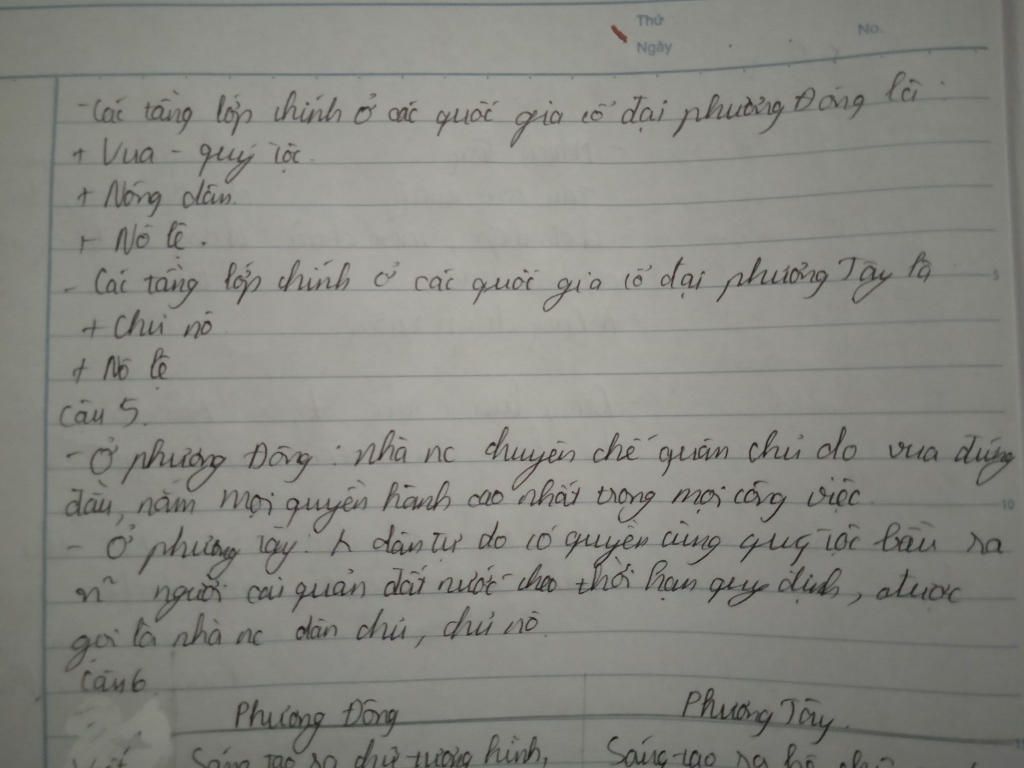 Thứ
Ngày
No.
- Các tầng lớp chính ở các quốc gia cổ đại phương Đông là
+ Vua - quý tộc.
+ Nông dân.
+ Nô lệ.
- Các tầng lớp chính ở các quốc gia cổ đại phương Tây là
5
+ Chủ nô
+ Nô lệ
Câu 5.
- Ở phương Đông: nhà nc chuyên chế quân chủ do vua đứng
đầu, nắm mọi quyền hành cao nhất trong mọi công việc
10
- Ở phương Tây: dân tự do có quyền cùng quý tộc bầu ra
n~ người cai quản đất nước theo thời hạn quy định, được
gọi là nhà nc dân chủ, chủ nô
Câu 6
Phương Đông
Phương Tây.
Sáng tạo ra chữ tượng hình,
Sáng tạo ra hệ chữ